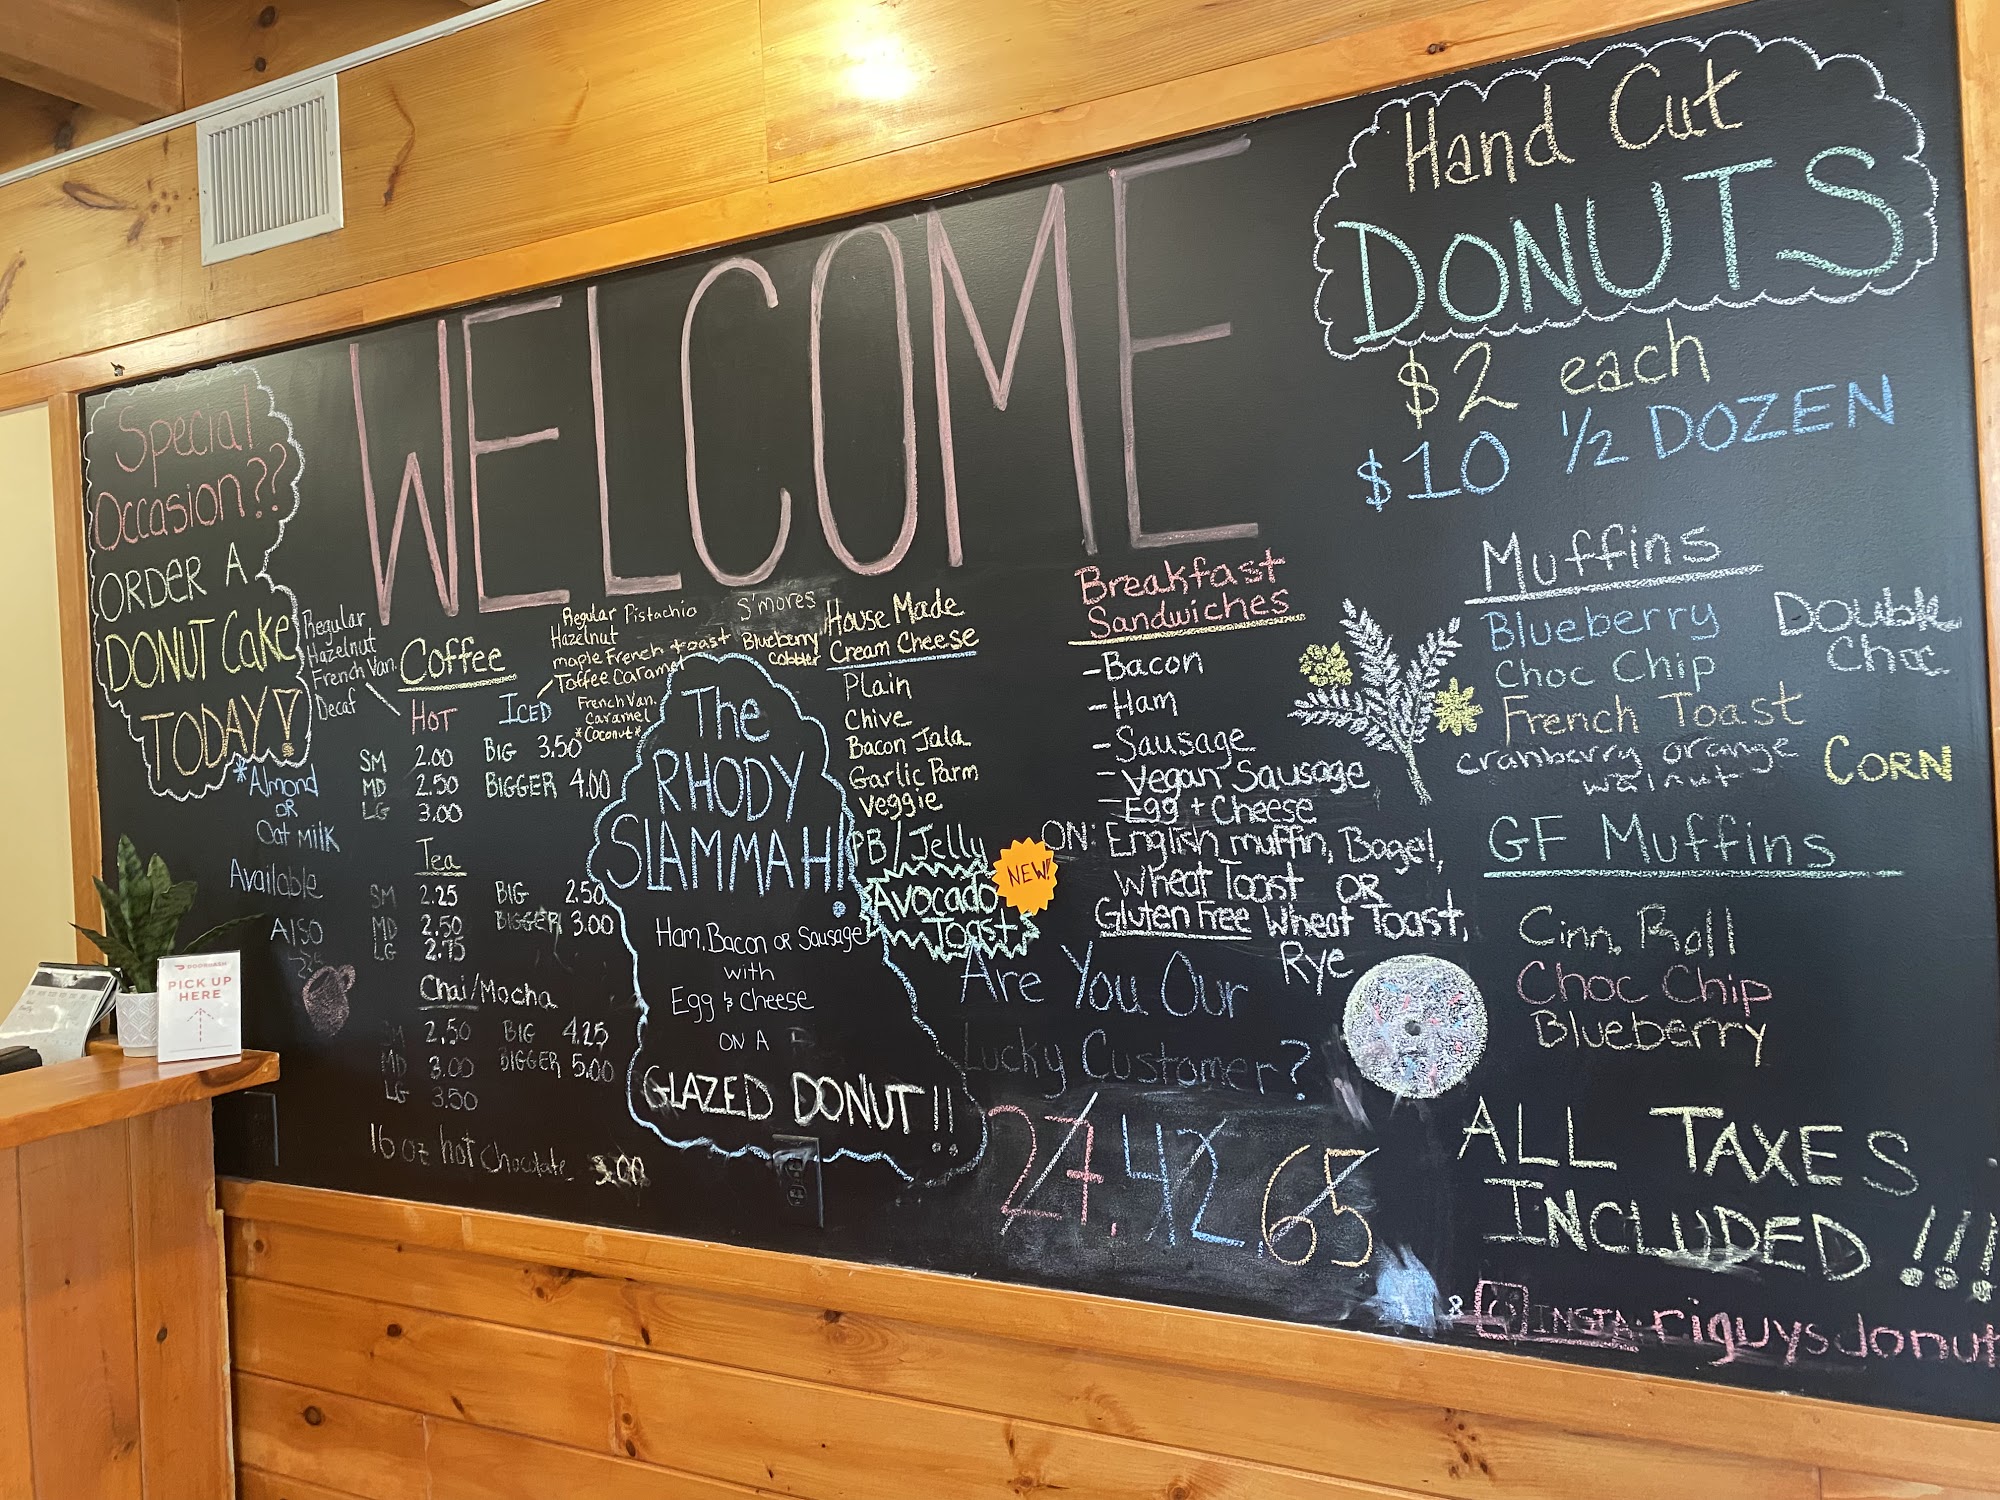 WELCOME
Special
Occasion??
ORDER A
DONUT Cake
TODAY!
Regular
Hazelnut
French Van.
Decaf
*Almond
OR
Oat Milk
Available
Also
Coffee
HOT
SM 2.00
MD 2.50
LG 3.00
ICED
BIG 3.50
BIGGER 4.00
Regular Pistachio
Hazelnut
maple French toast
Toffee Caramel
French Van.
Caramel
*Coconut*
S'mores
Blueberry
Cobbler
Tea
SM 2.25 BIG 2.50
MD 2.50 BIGGER 3.00
LG 2.75
Chai/Mocha
SM 2.50 BIG 4.25
MD 3.00 BIGGER 5.00
LG 3.50
16 oz hot Chocolate 3.00
The
RHODY
SLAMMAH!!
Ham, Bacon OR Sausage
with
Egg & Cheese
ON A
GLAZED DONUT!!
House Made
Cream Cheese
Plain
Chive
Bacon Jala
Garlic Parm
Veggie
PB/Jelly
Avocado
Toast
NEW!
Breakfast
Sandwiches
-Bacon
-Ham
-Sausage
-Vegan Sausage
-Egg + Cheese
ON: English muffin, Bagel,
Wheat Toast OR
Gluten Free Wheat Toast,
Rye
Are You Our
Lucky Customer?
27. 42 65
Hand Cut
DONUTS
$2 each
$10 1/2 DOZEN
Muffins
Blueberry
Choc Chip
French Toast
cranberry orange
walnut
Double
Choc
CORN
GF Muffins
Cinn. Roll
Choc Chip
Blueberry
ALL TAXES
INCLUDED!!!
& INSTA: riguysdonut
DOORDASH
PICK UP
HERE